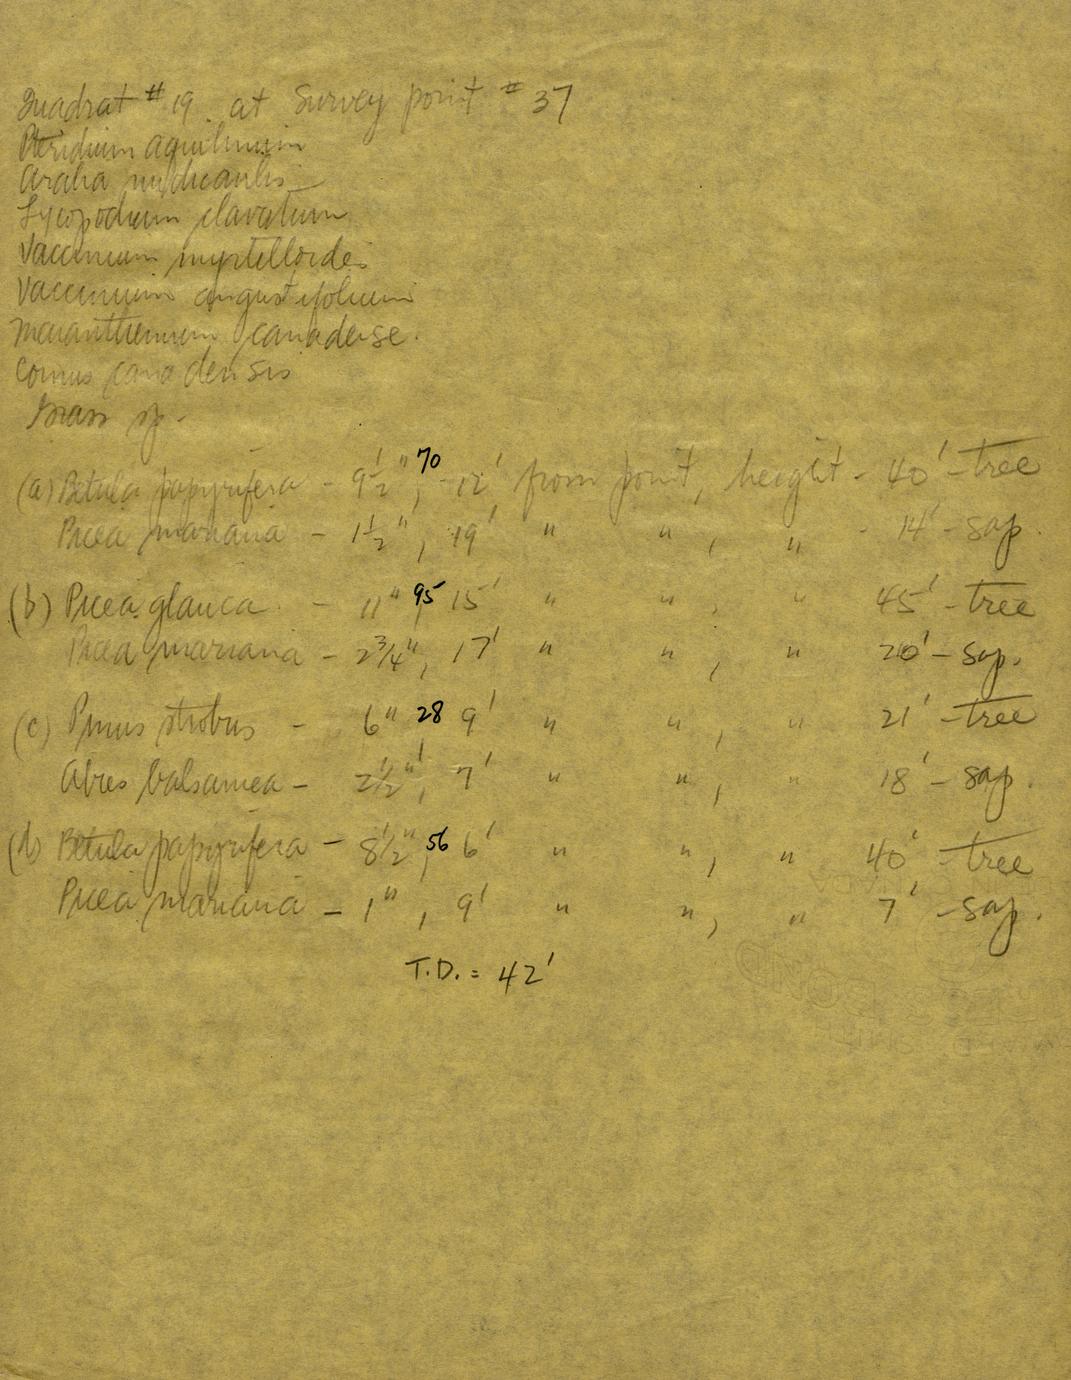 Quadrat # 19. at Survey point # 37
Pteridium aquilinum
Aralia nudicaulis
Lycopodium clavatum
Vaccinium myrtilloides
Vaccinium angustifolium
Maianthemum canadense.
Cornus canadensis
Grass sp.
(a) Betula papyrifera - 9 1/2", 70 - 12' from point, height - 40' - tree
Picea mariana - 1 1/2", 19' " ", " - 14' - sap.
(b) Picea glauca - 11", 95 15' " ", " 45' - tree
Picea mariana - 2 3/4", 17' " ", " 20' - sap.
(c) Pinus strobus - 6", 28 9' " ", " 21' - tree
Abies balsamea - 2 1/2", 7' " ", " 18' - sap.
(d) Betula papyrifera - 8 1/2", 56 6' " ", " 40' - tree
Picea mariana - 1", 9' " ", " 7' - sap.
T.D. = 42'